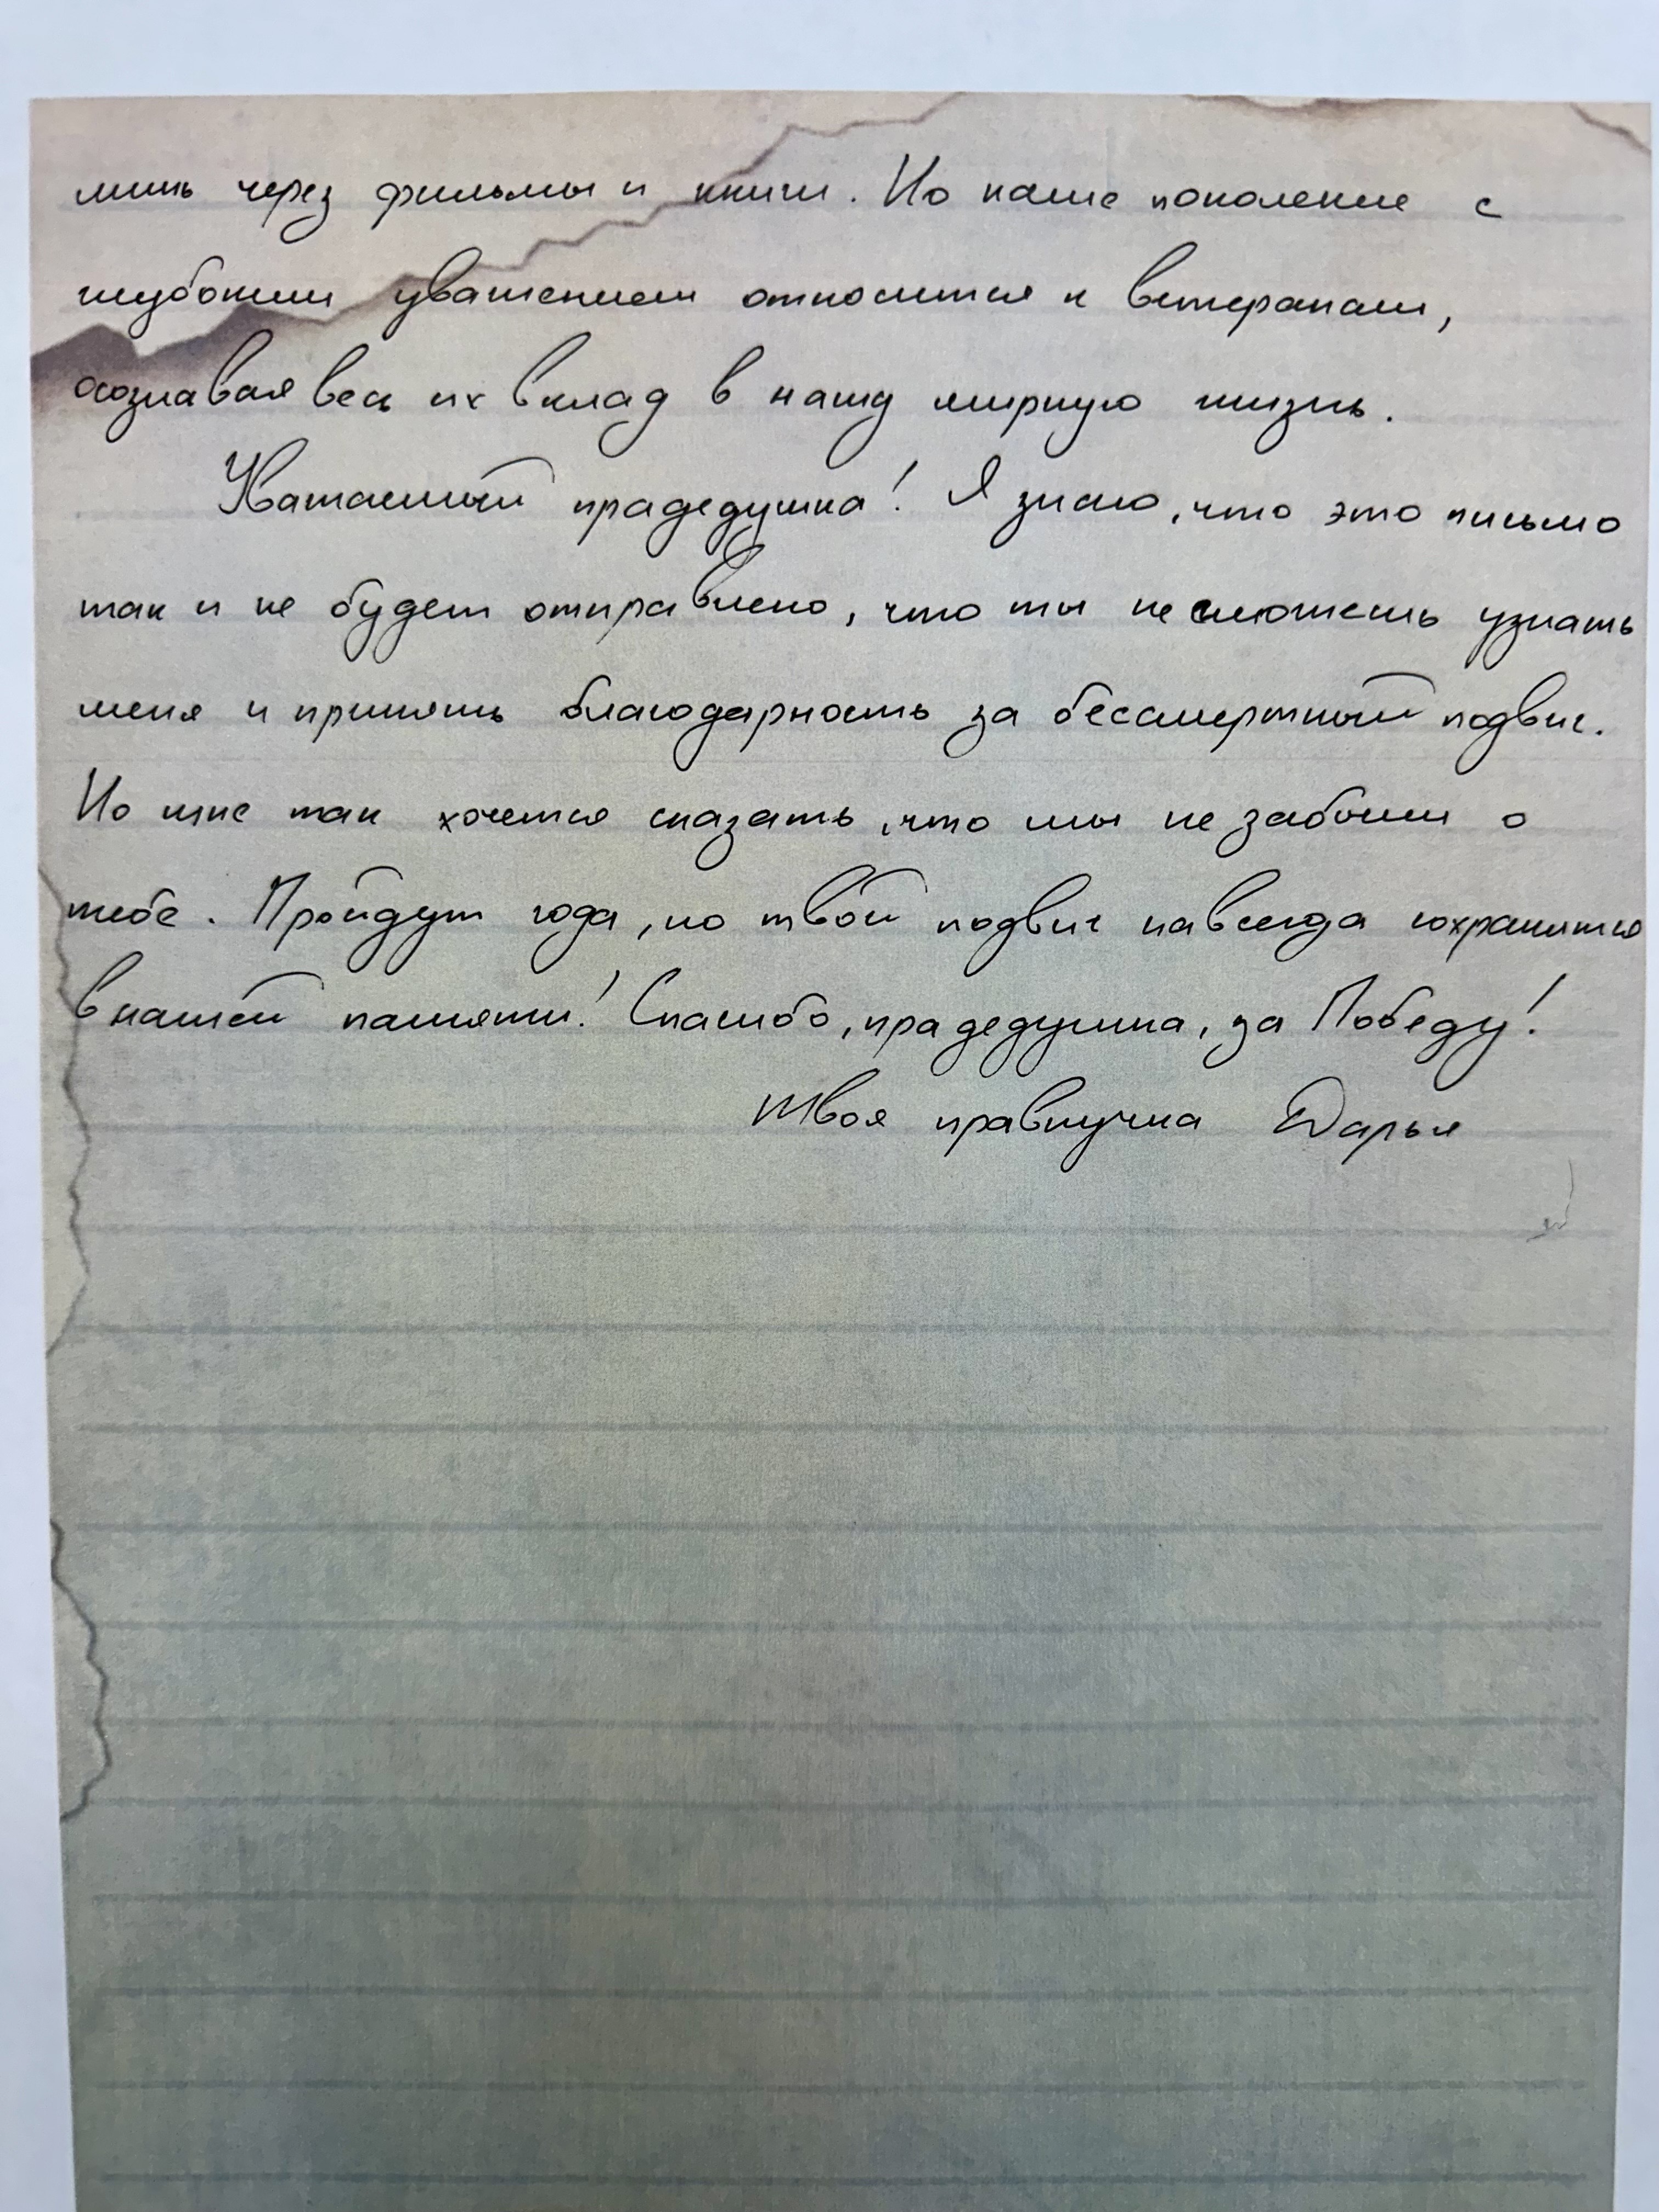 лишь через фильмы и книги. Но наше поколение с
глубоким уважением относится к ветеранам,
осознавая весь их вклад в нашу мирную жизнь.
Уважаемый прадедушка! Я знаю, что это письмо
так и не будет отправлено, что ты не сможешь узнать
меня и принять благодарность за бессмертный подвиг.
Но мне так хочется сказать, что мы не забыли о
тебе. Пройдут года, но твой подвиг навсегда сохранится
в нашей памяти! Спасибо, прадедушка, за Победу!
Твоя правнучка Дарья